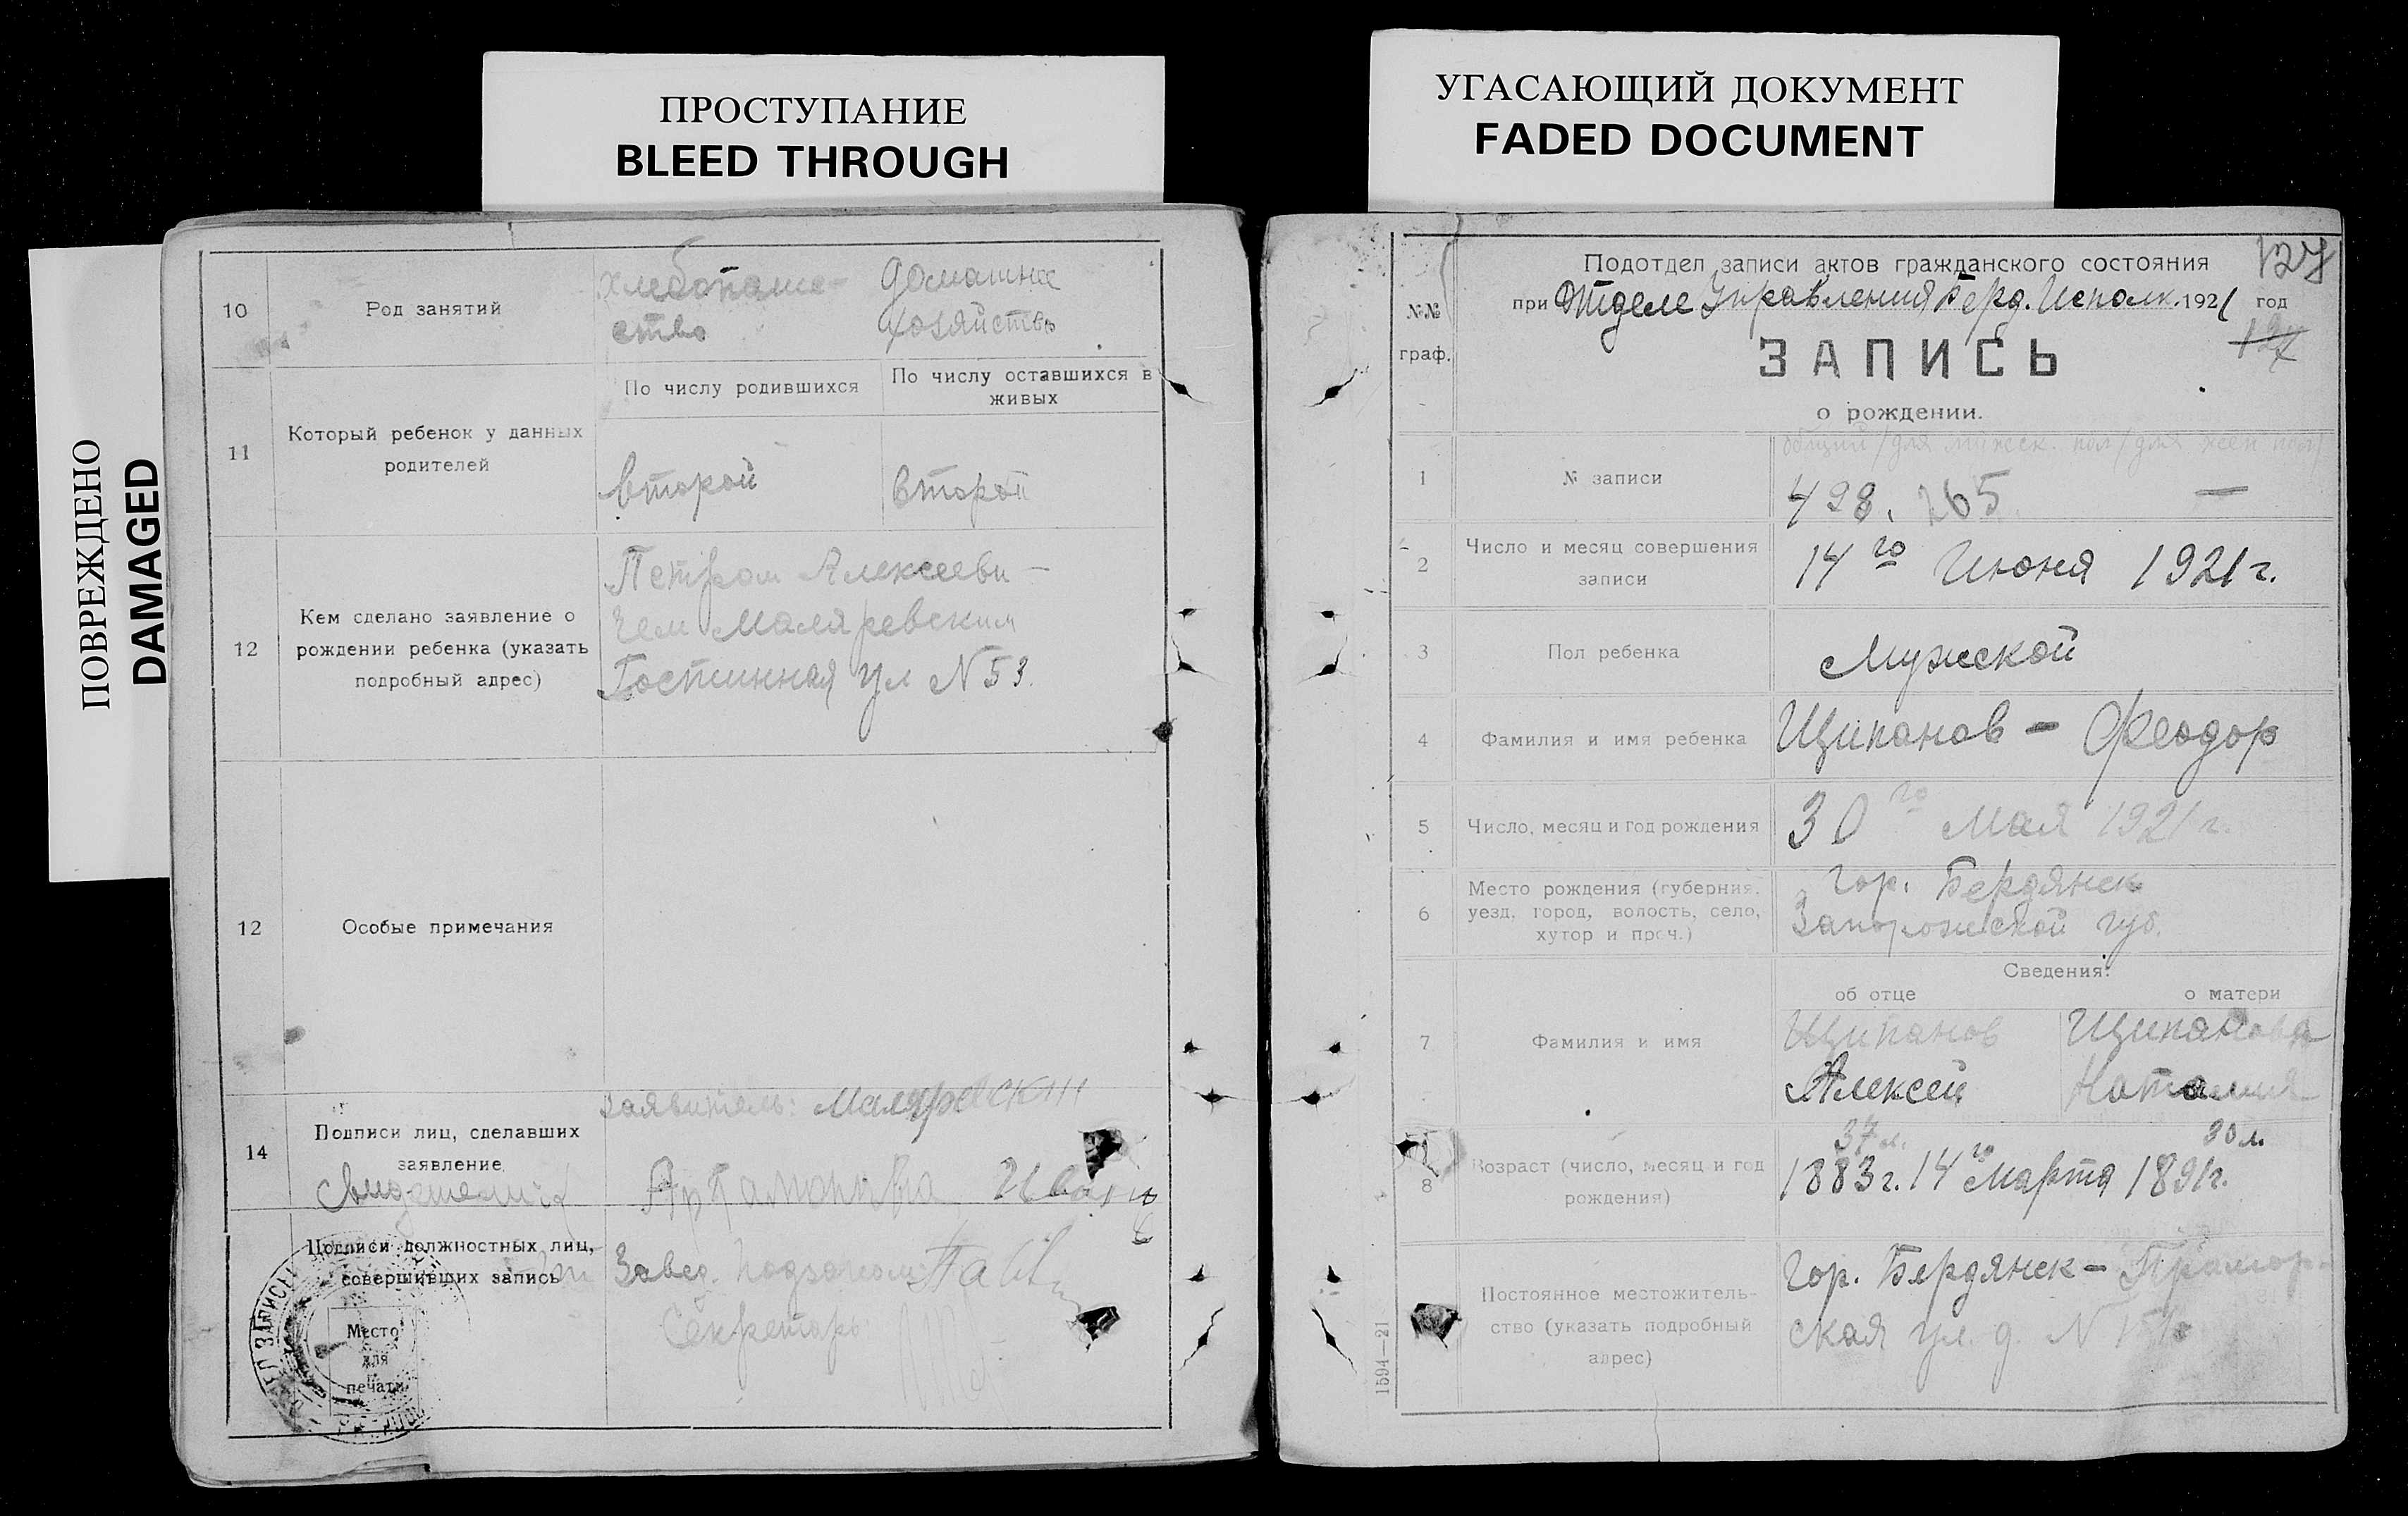 ПРОСТУПАНИЕ
BLEED THROUGH
УГАСАЮЩИЙ ДОКУМЕНТ
FADED DOCUMENT
ПОВРЕЖДЕНО
DAMAGED
10
Род занятий
хлебопаше-
ство
домашнее
хозяйство
11
Который ребенок у данных
родителей
По числу родившихся
По числу оставшихся в
живых
второй
второй
12
Кем сделано заявление о
рождении ребенка (указать
подробный адрес)
Петром Алексееви-
чем Маляревским
Гостинная ул N 53.
12
Особые примечания
14
Подписи лиц, сделавших
заявление
заявитель:
Свидетели:
Подписи должностных лиц,
совершивших запись
Завед. подотделом
Секретарь
Место
для
печати
127
Подотдел записи актов гражданского состояния
при Отделе Управления Берд. Исполк. 1921 год
№№
граф.
ЗАПИСЬ
о рождении.
1
№ записи
общий / для мужск. пол / для жен пол /
498. 265 —
2
Число и месяц совершения
записи
14го Июня 1921 г.
3
Пол ребенка
Мужской
4
Фамилия и имя ребенка
Щипанов - Феодор
5
Число, месяц и год рождения
30го Мая 1921 г.
6
Место рождения (губерния,
уезд, город, волость, село,
хутор и проч.)
гор. Бердянск
Запорожской губ.
Сведения:
об отце
о матери
7
Фамилия и имя
Щипанов
Алексей
Щипанова
Наталия
8
Возраст (число, месяц и год
рождения)
37 л.
30 л.
1883 г. 14го Марта 1891 г.
Постоянное местожитель-
ство (указать подробный
адрес)
Гор. Бердянск - Примор-
ская ул. д. N
1594—21